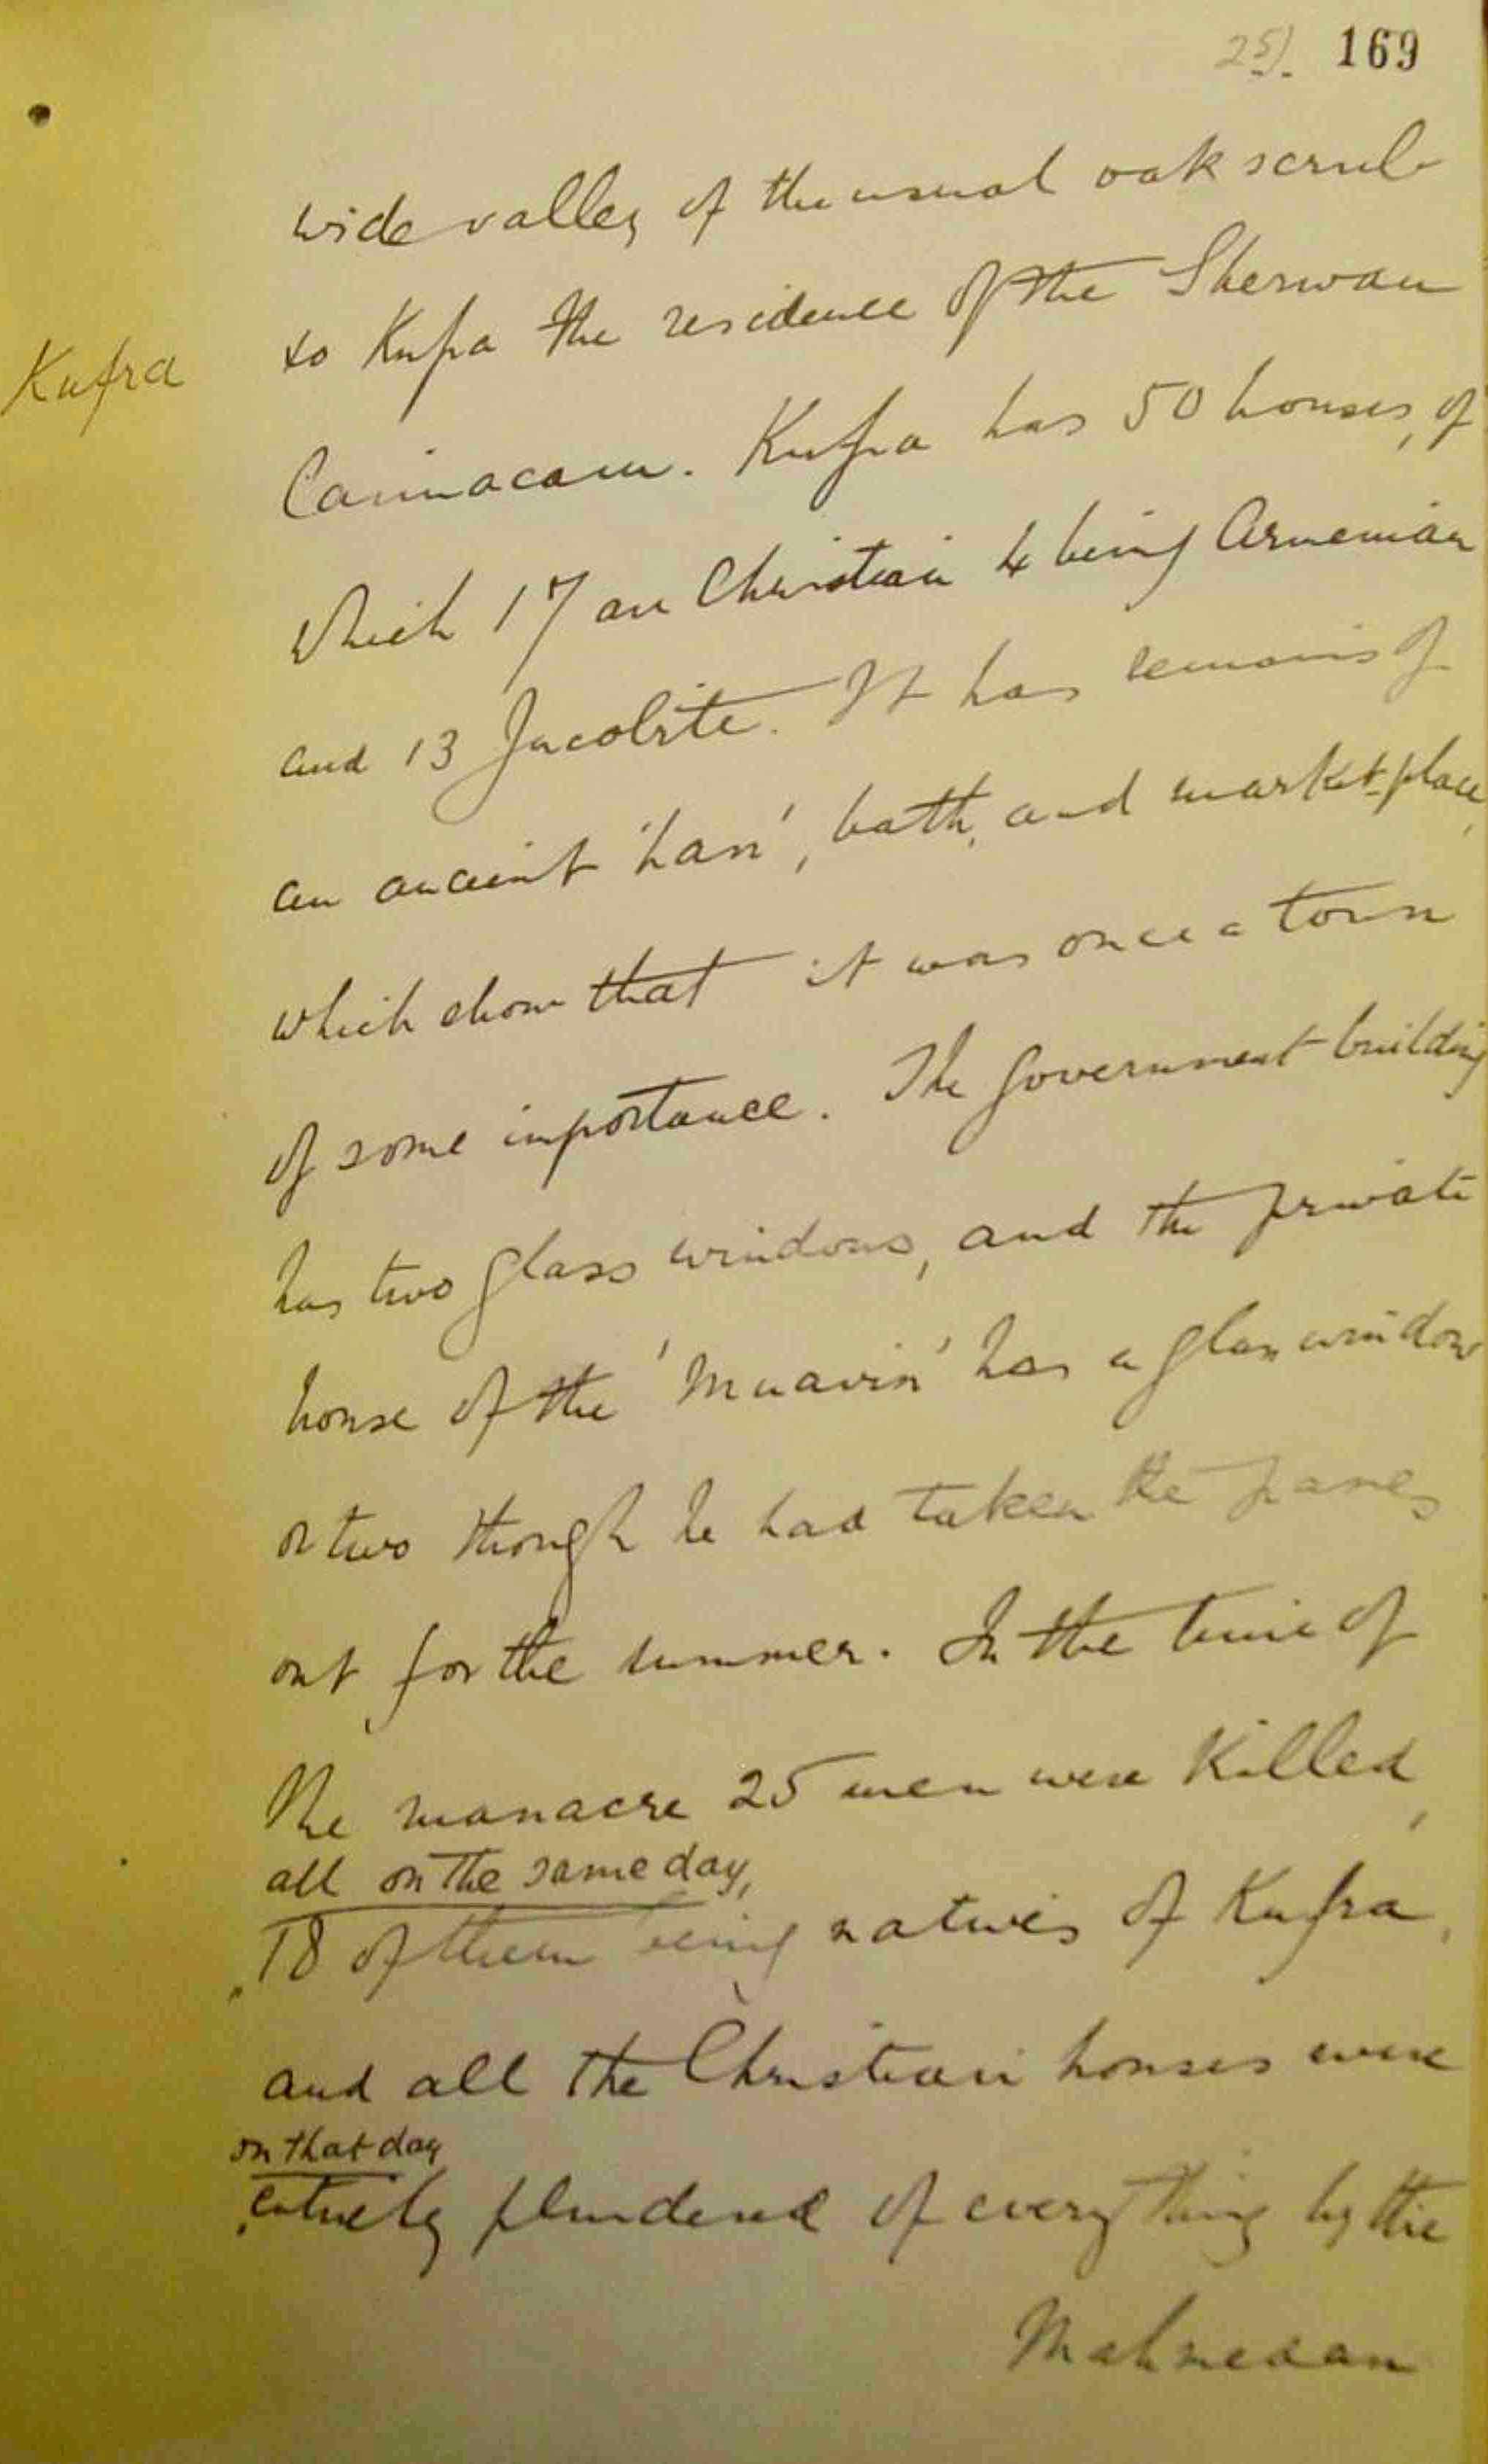 25). 169
wide valley of the usual oak scrub
Kufra
to Kufra the residence of the Sherwan
Caimacam. Kufra has 50 houses, of
which 17 are Christian 4 being Armenian
and 13 Jacobite. It has remains of
an ancient 'han', bath, and market-place,
which show that it was once a town
of some importance. The Government building
has two glass windows, and the private
house of the 'Muavin' has a glass window
or two though he had taken the panes
out for the summer. In the time of
the massacre 25 men were killed,
all on the same day,
18 of them being natives of Kufra,
and all the Christian houses were
on that day
entirely plundered of everything by the
Mahmedan